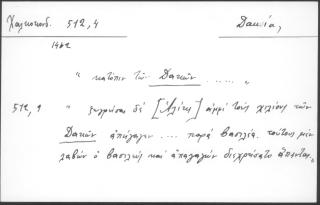 Χαλκοκονδ. 512,4 Δακία,
1462
" κατόπιν τῶν Δακῶν . . . . . "
512,9 " ζωγρῆσαι δὲ [Ἀλίης] ἀμφὶ τοὺς χιλίους τῶν
Δακῶν ἀπάγαγεν .... παρὰ βασιλέα. τούτους μὲν
λαβὼν ὁ βασιλεὺς καὶ ἀπαγαγὼν διεχρήσατο ἅπαντας "